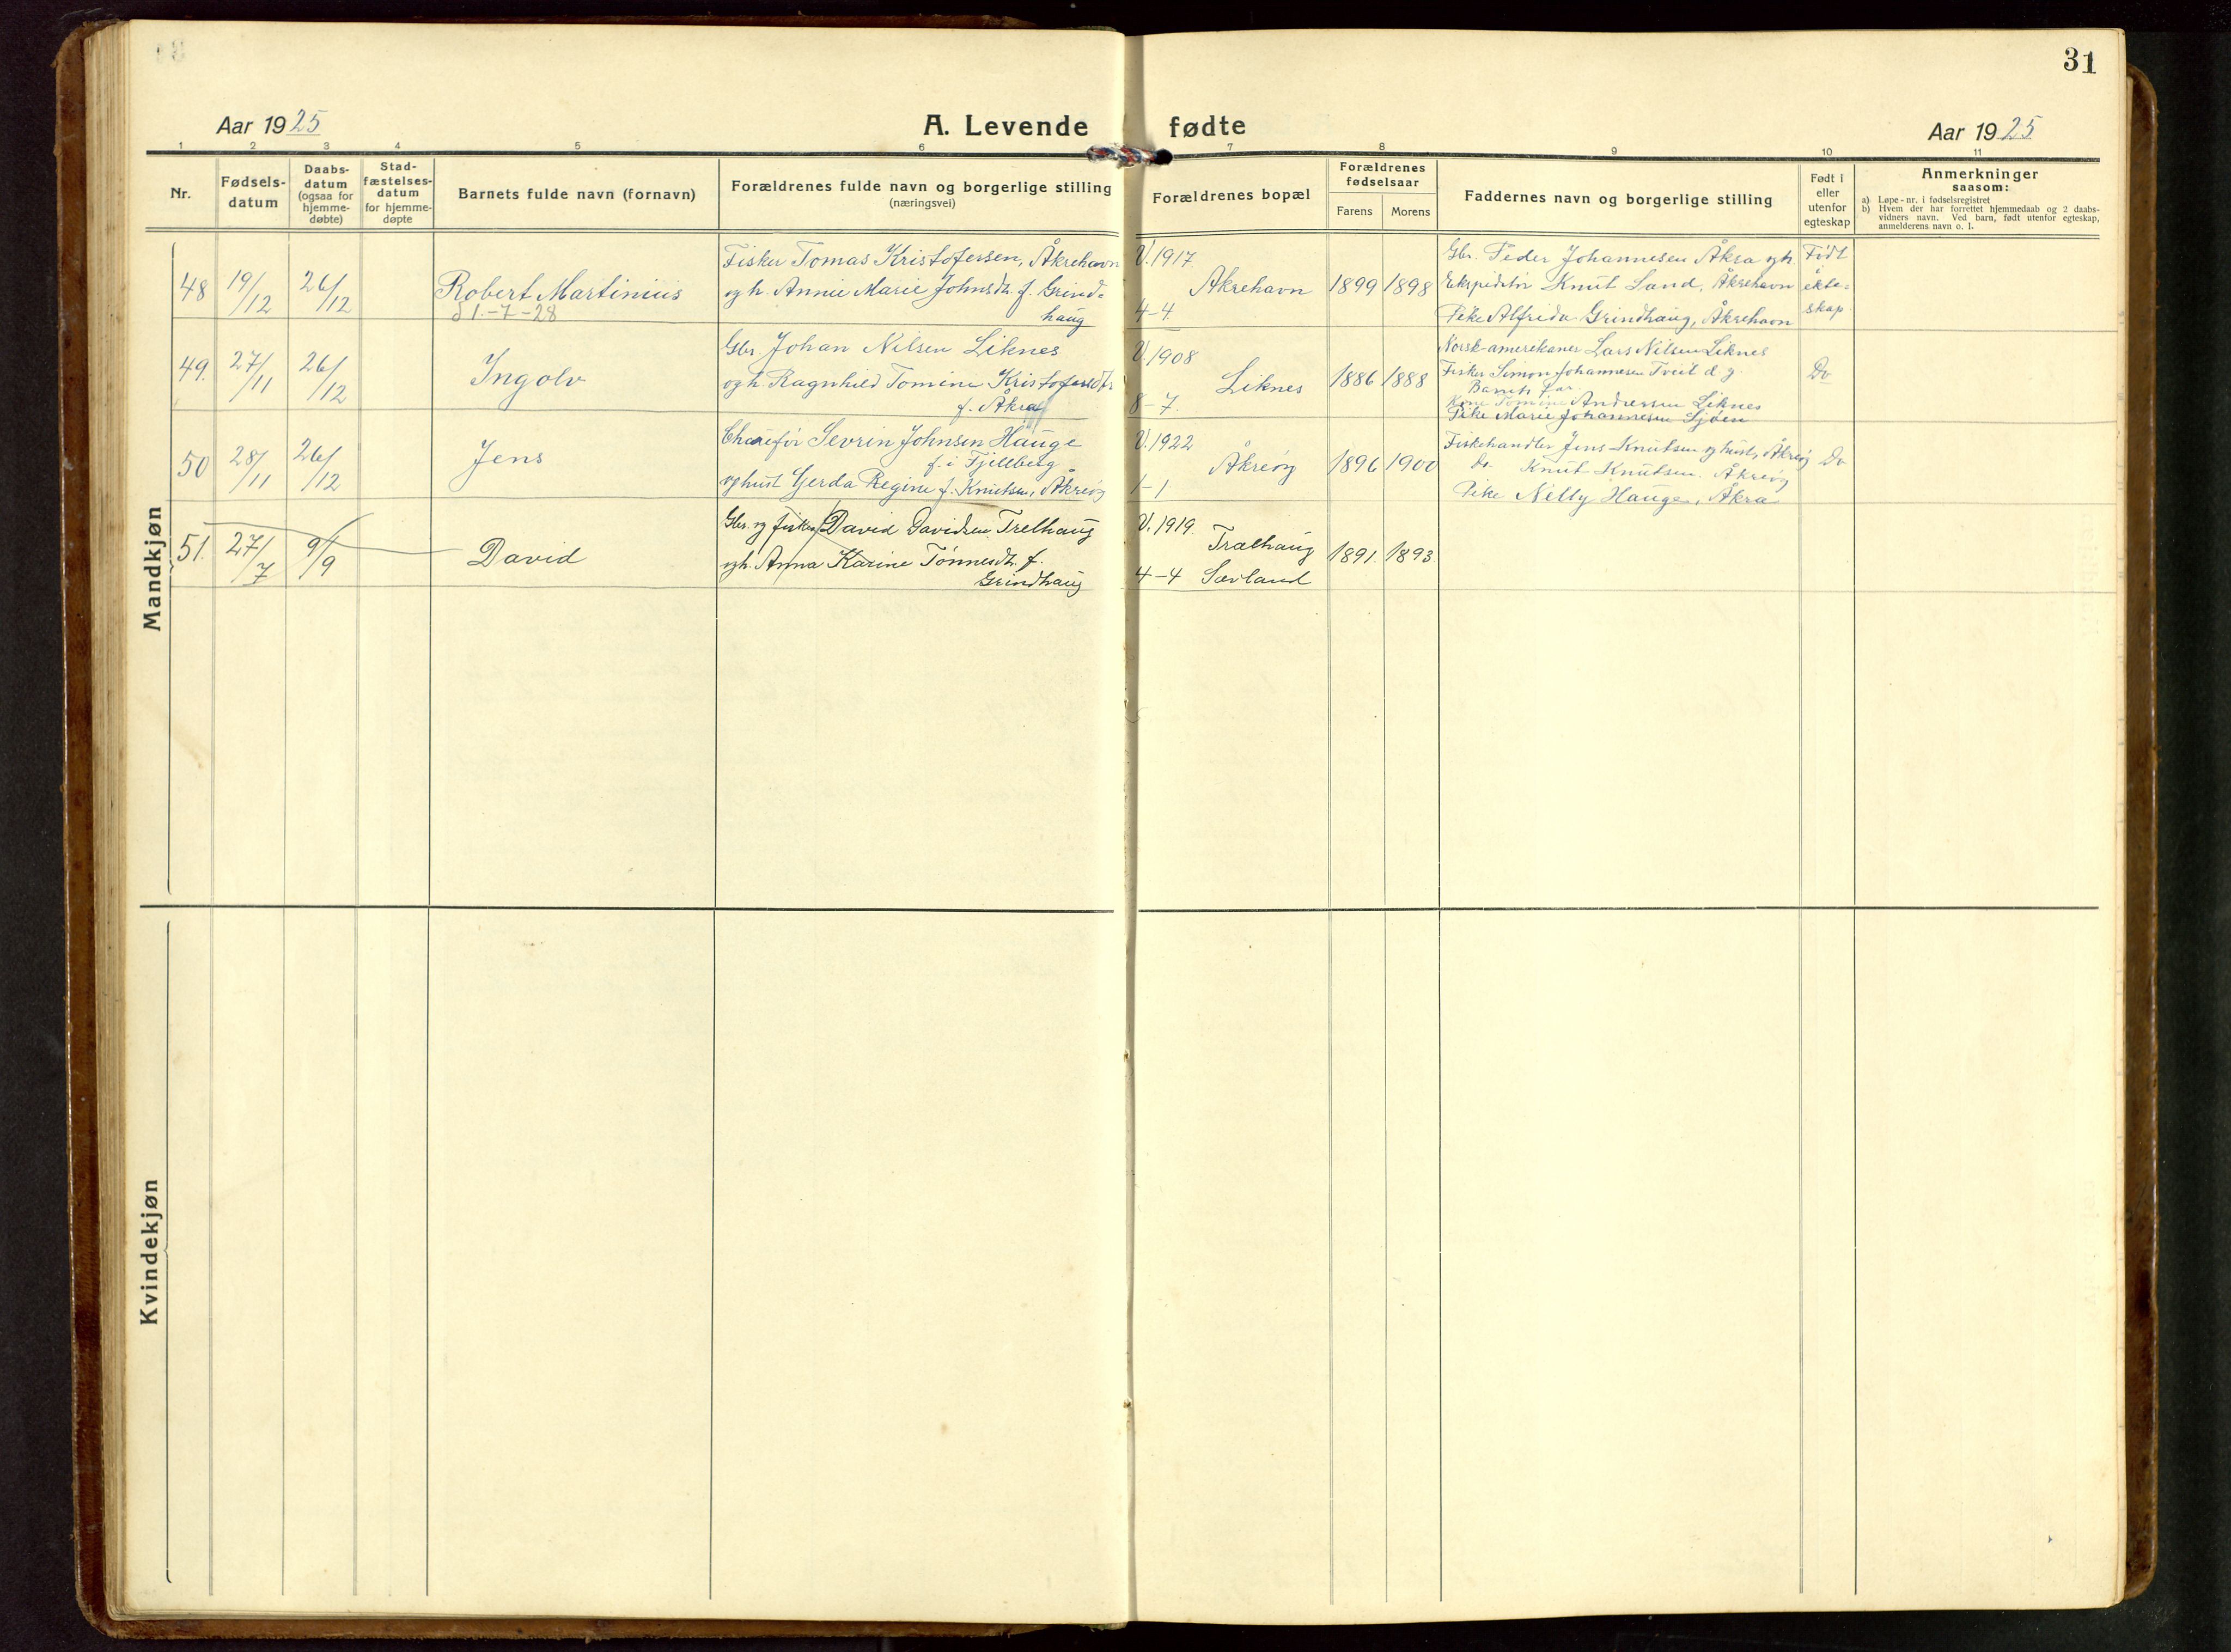 31
Aar 1925
A. Levende fødte
Aar 1925
1 2 3 4 5 6 7 8 9 10 11
Nr.
Fødsels-
datum
Daabs-
datum
(ogsaa for
hjemme-
døbte)
Stad-
fæstelses-
datum
for hjemme-
døpte
Barnets fulde navn (fornavn)
Forældrenes fulde navn og borgerlige stilling
(næringsvei)
Forældrenes bopæl
Forældrenes
fødselsaar
Farens Morens
Faddernes navn og borgerlige stilling
Født i
eller
utenfor
egteskap
Anmerkninger
saasom:
a) Løpe-nr. i fødselsregistret
b) Hvem der har forrettet hjemmedaab og 2 daabs-
vidners navn. Ved barn, født utenfor egteskap,
anmelderens navn o. l.
Mandkjøn
48 19/12 26/12
Robert Martinius
d 1.-7-28
Fisker Tomas Kristofersen, Åkrehavn
og h. Annie Marie Johnsdtr. f. Grind-
haug
V. 1917
Åkrehavn
4-4
1899 1898
Gbr. Peder Johannesen Åkra og h.
Ekspeditør Knut Sand, Åkrehavn
Pike Alfrida Grindhaug, Åkrehavn
Født
i ekte-
skap
49. 27/11 26/12
Ingolv
Gbr. Johan Nilsen Liknes
og h. Ragnhild Tomine Kristofersdtr
f. Åkra
V. 1908
Liknes
8-7.
1886 1888
Norsk-amerikaner Lars Nilsen Liknes
Fisker Simon Johannesen Tveit d. y.
Barnets far
Kone Tomine Andressen Liknes
Pike Marie Johannesen Sjøen
Do
50 28/11 26/12
Jens
Chaufør Sevrin Johnsen Hauge
f. i Fjellberg
og hust Gerda Regine f. Knutsen, Åkreøy
V. 1922
Åkreøy
1-1
1896 1900
Fiskehandler Jens Knutsen og hust, Åkreøy
do. Knut Knutsen. Åkreøy
Pike Nelly Hauge, Åkra
Do
51. 27/7 9/9
David
Gbr. og fisker David Davidsen Trelhaug
og h. Anna Karine Tønnesdtr. f.
Grindhaug
V. 1919.
Trælhaug
4-4 Sævland
1891. 1893.
Kvindekjøn